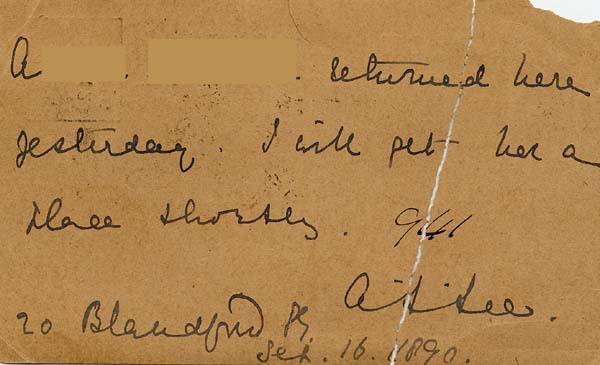 A . . returned here
yesterday. I will get her a
place shortly. 941
20 Blandford
Sep. 16. 1890.